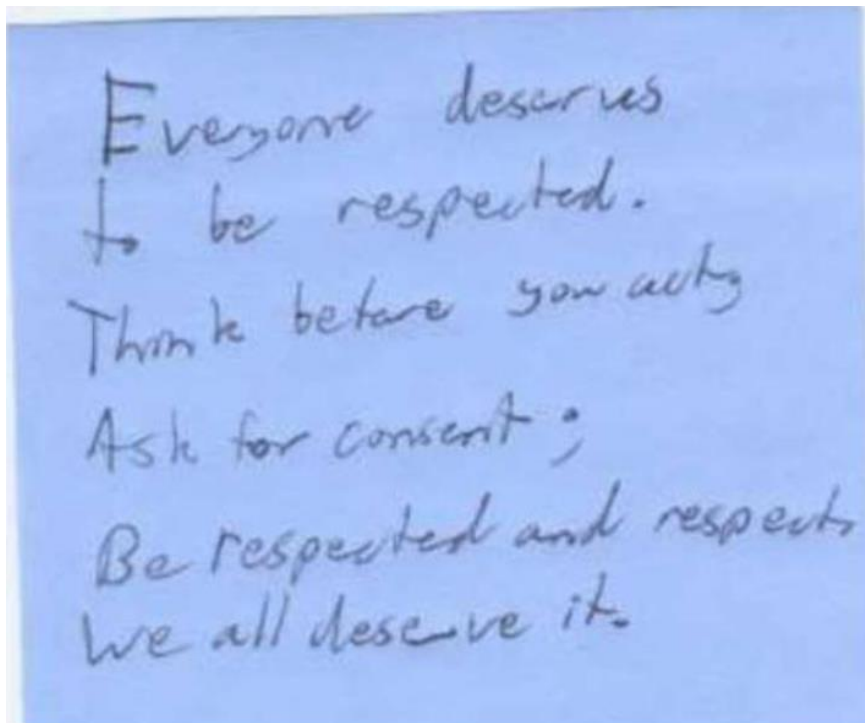 Everyone deserves
to be respected.
Think before you act,
Ask for consent;
Be respected and respect.
We all deserve it.